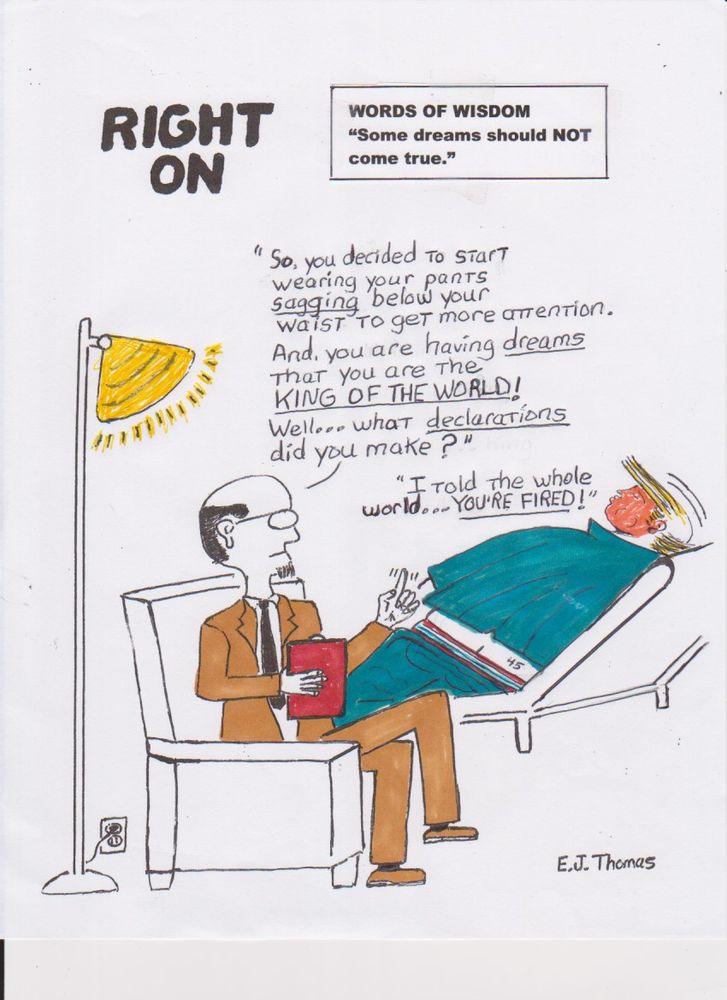 RIGHT
ON
WORDS OF WISDOM
“Some dreams should NOT
come true.”
"So, you decided to start
wearing your pants
sagging below your
waist to get more attention.
And, you are having dreams
that you are the
KING OF THE WORLD!
Well... what declarations
did you make?"
"I told the whole
world.... YOU'RE FIRED!"
45
E.J. Thomas